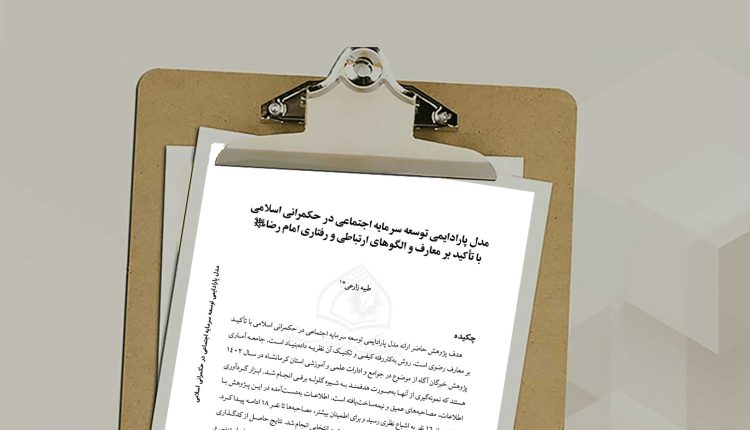 مدل پارادایمی توسعه سرمایه اجتماعی در حکمرانی اسلامی
با تأکید بر معارف و الگوهای ارتباطی و رفتاری امام رضا﵇
طیبه زارعی*۱
چکیده
هدف پژوهش حاضر ارائه مدل پارادایمی توسعه سرمایه اجتماعی در حکمرانی اسلامی با تأکید
بر معارف رضوی است. روش به‌کاررفته کیفی و تکنیک آن نظریه داده‌بنیاد است. جامعه آماری
پژوهش خبرگان آگاه از موضوع در جوامع و ادارات علمی و آموزشی استان کرمانشاه در سال ۱۴۰۲
هستند که نمونه‌گیری از آنها به‌صورت هدفمند به شیوه گلوله برفی انجام شد. ابزار گردآوری
اطلاعات، مصاحبه‌های عمیق و نیمه‌ساخت‌یافته است. اطلاعات به‌دست‌آمده در این پژوهش با
۱۶ نفر به اشباع نظری رسید و برای اطمینان بیشتر، مصاحبه‌ها تا نفر ۱۸ ادامه پیدا کرد.
انتخابی انجام شد. نتایج حاصل از کدگذاری
مدل پارادایمی توسعه سرمایه اجتماعی در حکمرانی اسلامی